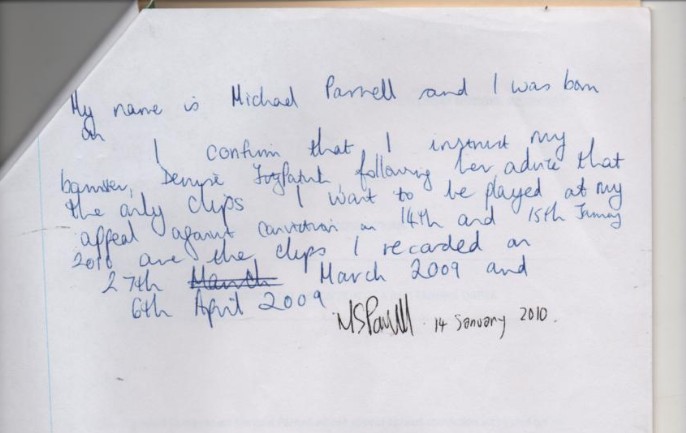 My name is Michael Parnell and I was born
on
I confirm that I instruct my
barrister, Denyse following her advice that
the only clips I want to be played at my
appeal against conviction on 14th and 15th January
2010 are the clips I recorded on
27th March March 2009 and
6th April 2009
14 January 2010.